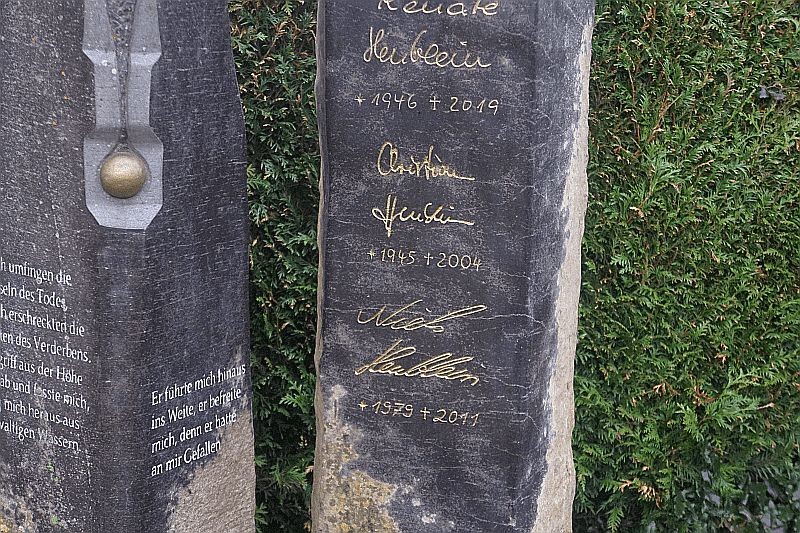 h umfingen die
seln des Todes,
h erschreckten die
en des Verderbens.
griff aus der Höhe
ab und fasste mich,
mich heraus aus
waltigen Wassern.
Er führte mich hinaus
ins Weite, er befreite
mich, denn er hatte
an mir Gefallen
Renate
Heublein
* 1946 + 2019
Christian
* 1945 + 2004
Niels
Heublein
* 1979 + 2011